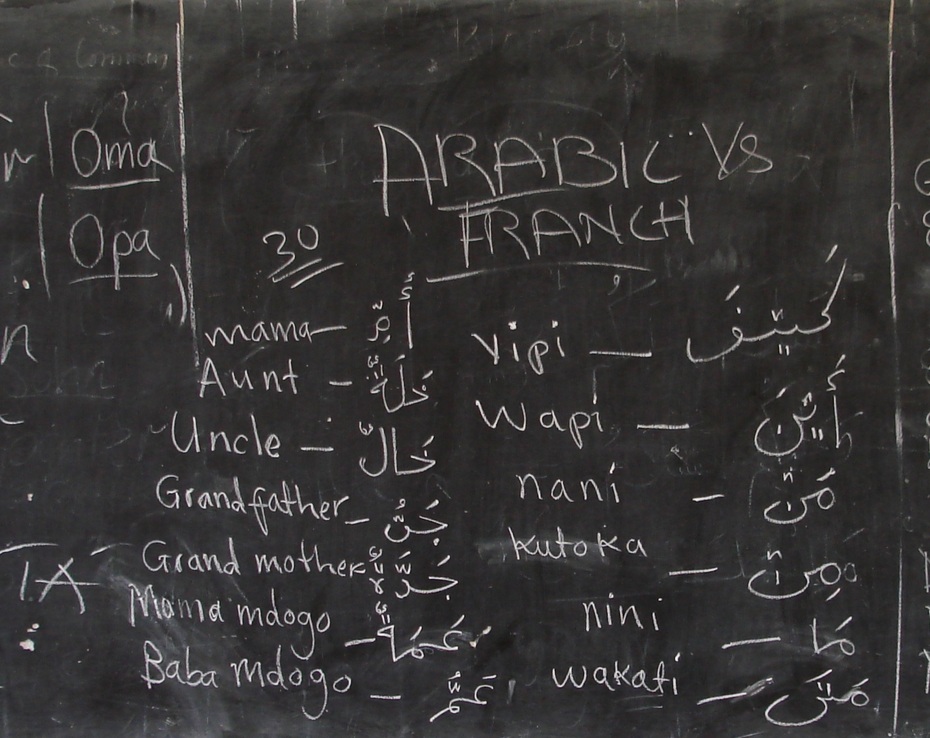 Oma
Opa
ARABIC Vs
FRANCH
30
mama — أُمٌّ
Aunt — خَلَةٌ
Uncle — خَالٌ
Grandfather —
Grand mother جَدَّةٌ
Mama mdogo — عَمَةٌ
Baba Mdogo — عَمٌّ
vipi — كَيْفَ
Wapi — أَيْنَ
nani — مَنْ
kutoka — مِنْ
nini — مَا
wakati —
TA